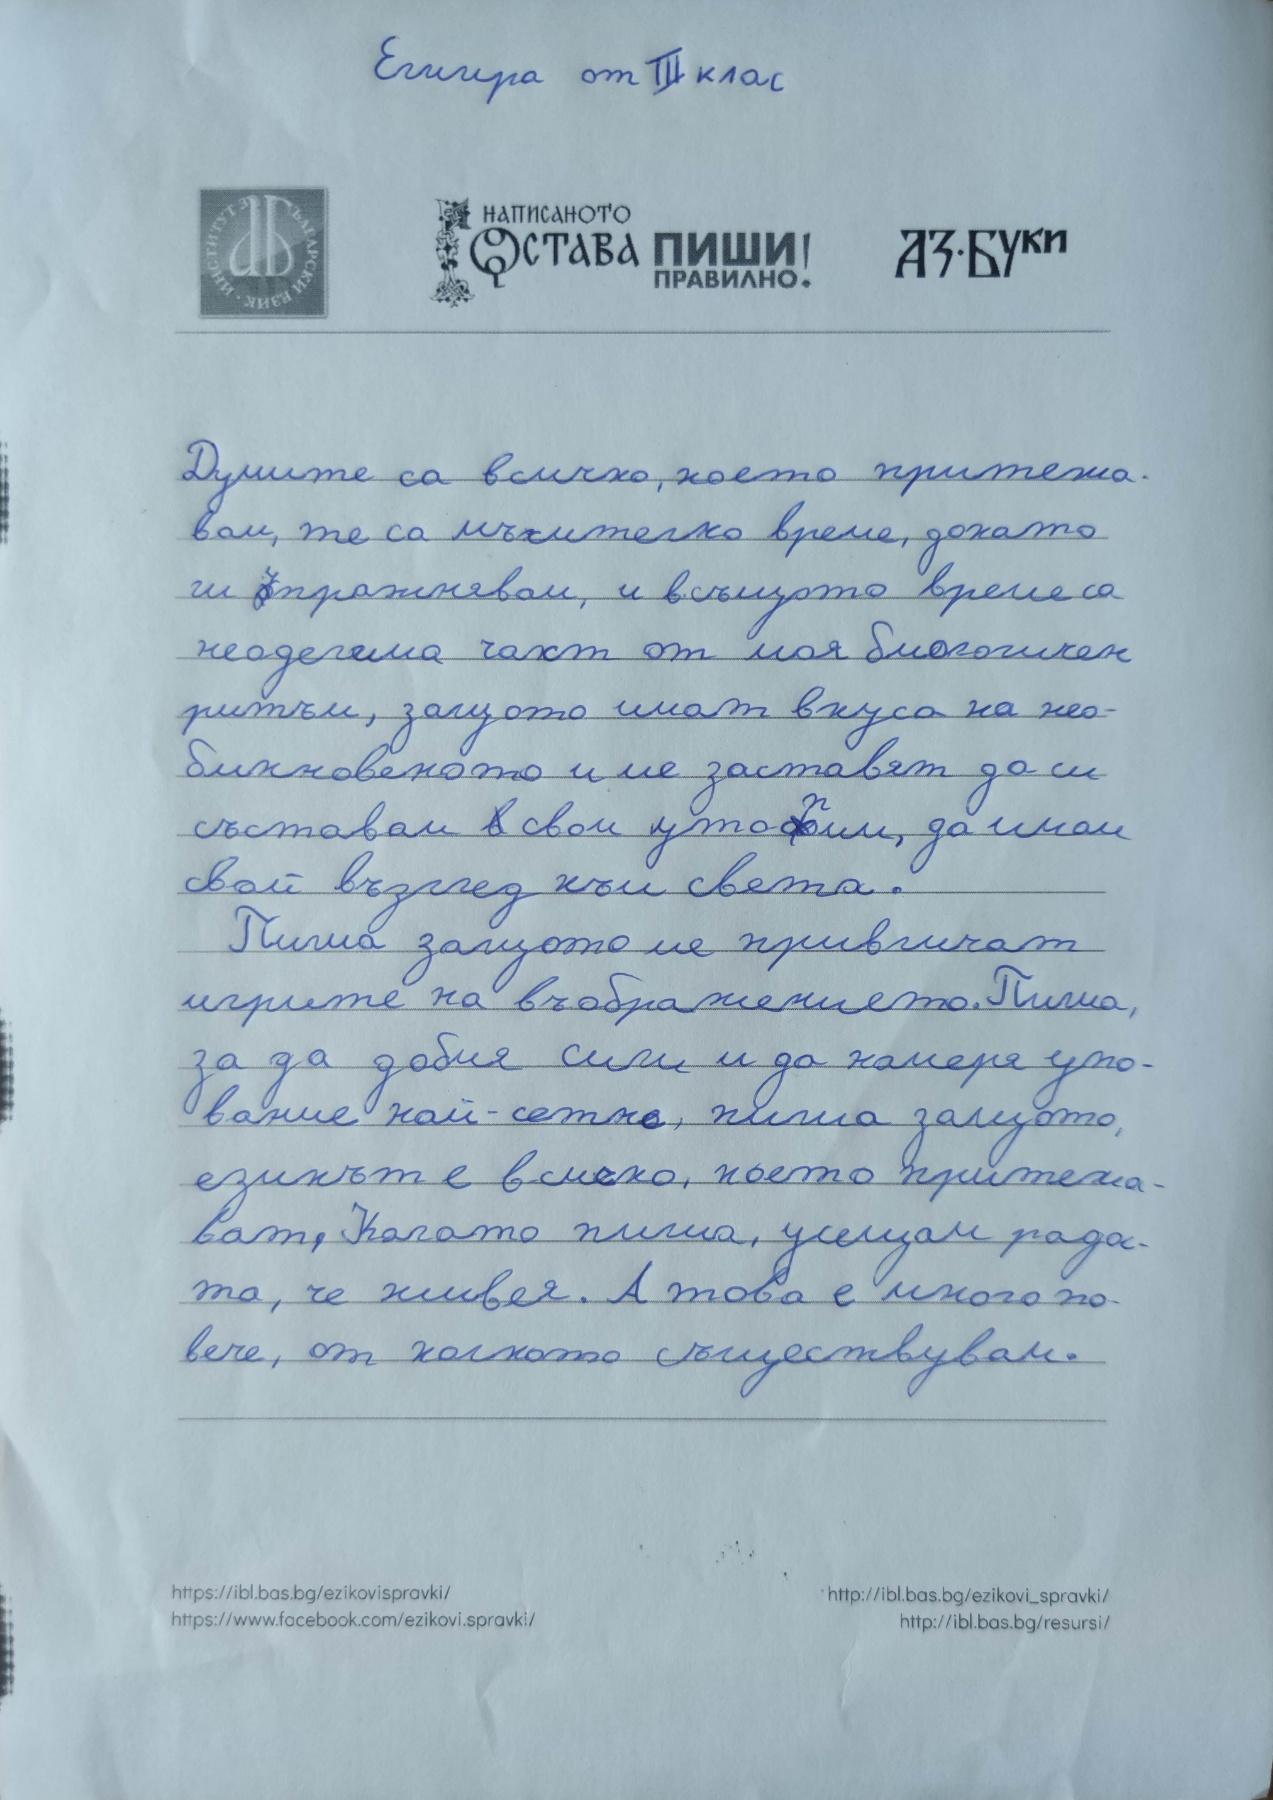 Елица от III клас
ИНСТИТУТ ЗА БЪЛГАРСКИ ЕЗИК
НАПИСАНОТО
ОСТАВА ПИШИ
ПРАВИЛНО!
АЗ·БУКИ
Думите са всичко, което притежа-
вам, те са мъчително време, докато
ги упражнявам, и всъщото време са
неоделима част от моя биологичен
ритъм, защото имат вкуса на нео-
бикновеното и ме заставят да си
съставам свои утопии, да имам
свой възглед към света.
Пиша защото ме привличат
игрите на въображението. Пиша,
за да добия сили и да намеря упо-
вание най-сетне, пиша защото,
езикът е всичко, което притежа-
ват, Когато пиша, усещам радо-
та, че живея. А това е много по-
вече, от колкото съществувам.
https://ibl.bas.bg/ezikovispravki/
http://ibl.bas.bg/ezikovi_spravki/
https://www.facebook.com/ezikovi.spravki/
http://ibl.bas.bg/resursi/